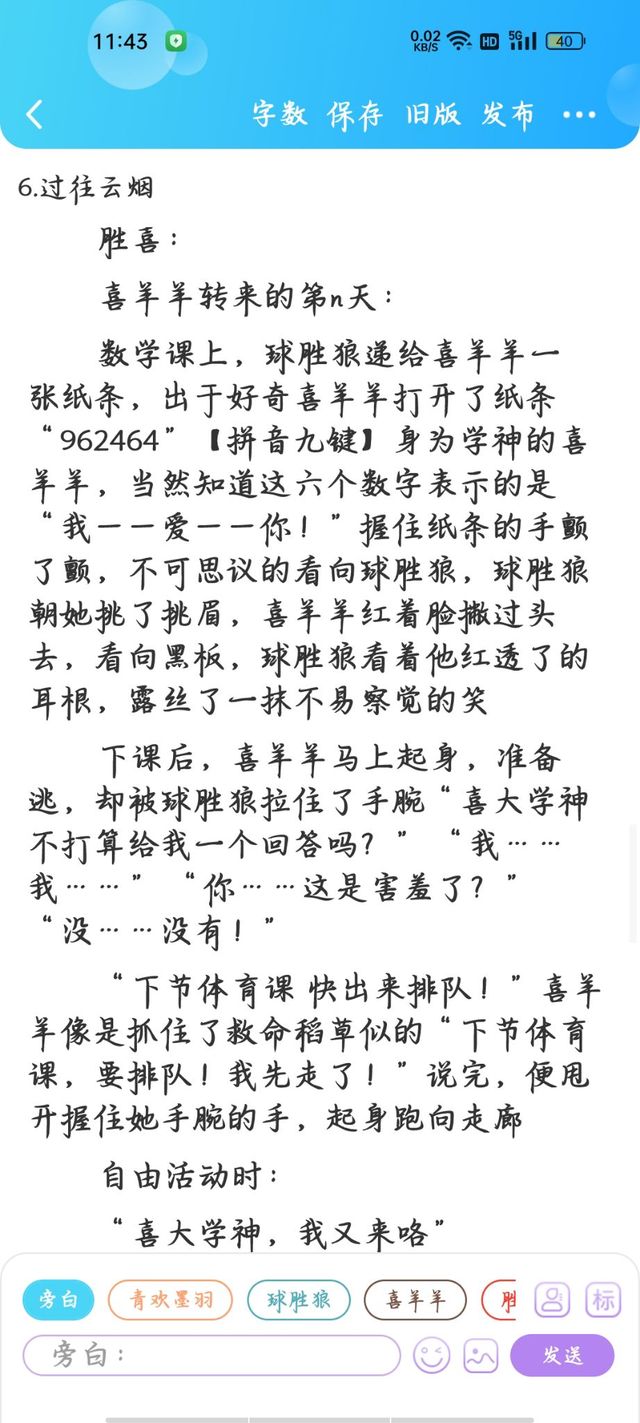 11:43
0.02 KB/S HD 5G 40
字数 保存 旧版 发布 ···
6.过往云烟
胜喜：
喜羊羊转来的第n天：
数学课上，球胜狼递给喜羊羊一
张纸条，出于好奇喜羊羊打开了纸条
“962464”【拼音九键】身为学神的喜
羊羊，当然知道这六个数字表示的是
“我——爱——你！”握住纸条的手颤
了颤，不可思议的看向球胜狼，球胜狼
朝她挑了挑眉，喜羊羊红着脸撇过头
去，看向黑板，球胜狼看着他红透了的
耳根，露丝了一抹不易察觉的笑
下课后，喜羊羊马上起身，准备
逃，却被球胜狼拉住了手腕“喜大学神
不打算给我一个回答吗？”“我……
我……”“你……这是害羞了？”
“没……没有！”
“下节体育课 快出来排队！”喜羊
羊像是抓住了救命稻草似的“下节体育
课，要排队！我先走了！”说完，便甩
开握住她手腕的手，起身跑向走廊
自由活动时：
“喜大学神，我又来咯”
旁白 青欢墨羽 球胜狼 喜羊羊 胜 标
旁白： 发送